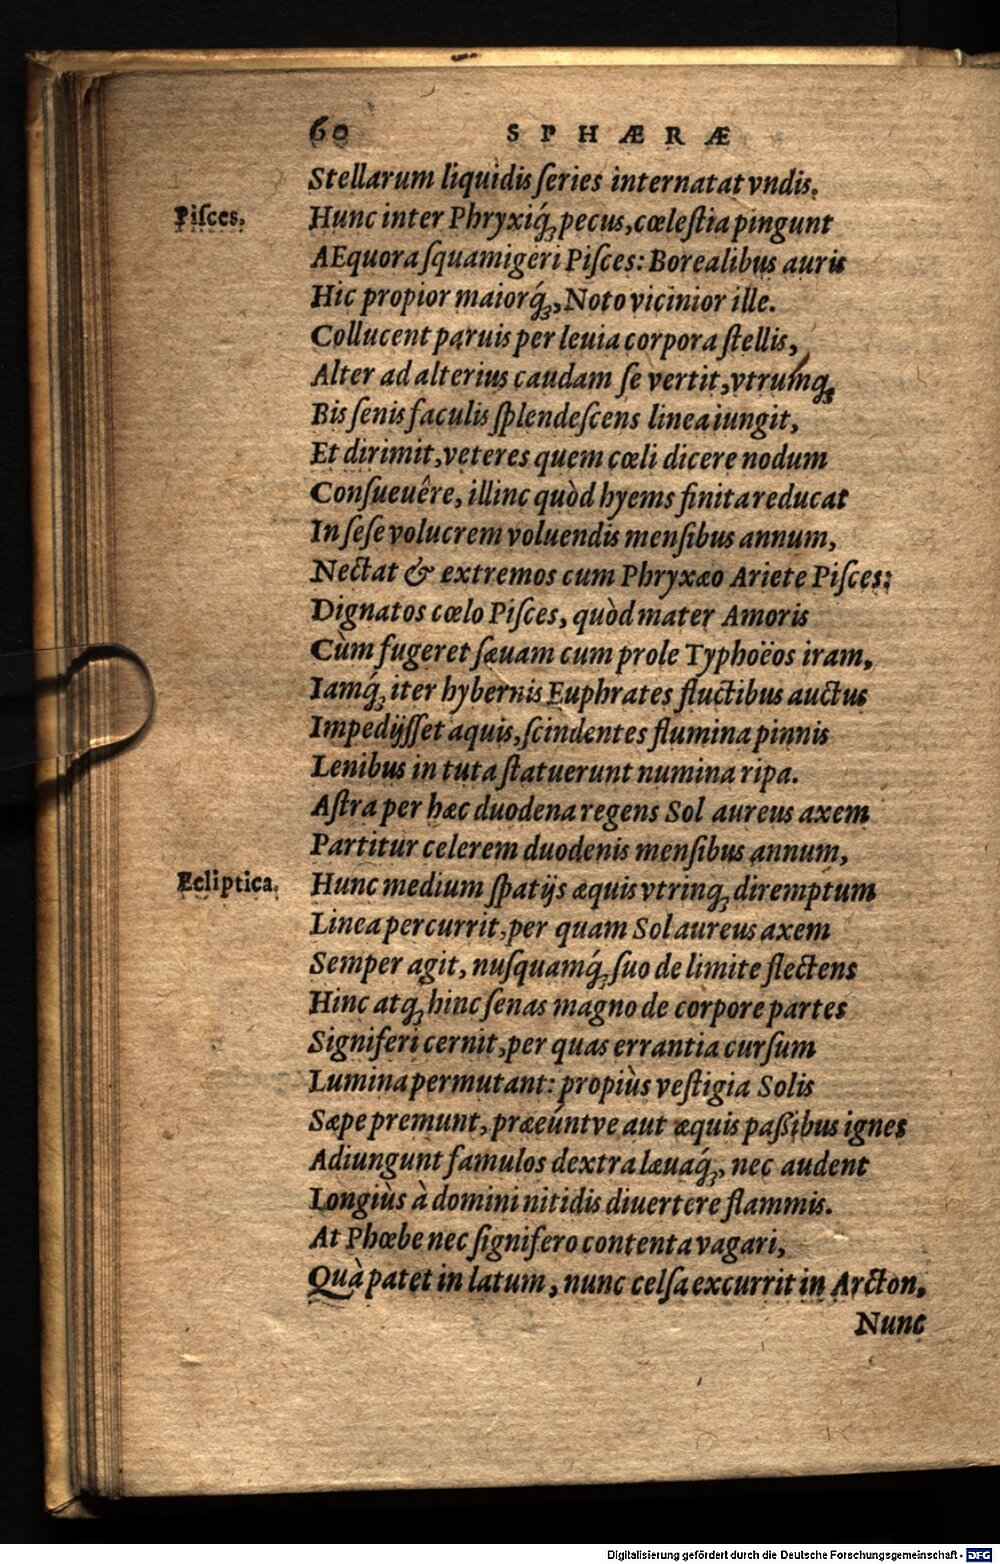 60 SPHÆRÆ
Stellarum liquidis ſeries internatat vndis.
Piſces.
Hunc inter Phryxiq́; pecus, cœleſtia pingunt
AEquora ſquamigeri Piſces: Borealibus auris
Hic propior maiorq́;, Noto vicinior ille.
Collucent paruis per leuia corpora ſtellis,
Alter ad alterius caudam ſe vertit, vtrumq;
Bis ſenis faculis ſplendeſcens linea iungit,
Et dirimit, veteres quem cœli dicere nodum
Conſueuêre, illinc quòd hyems finita reducat
In ſeſe volucrem voluendis menſibus annum,
Nectat & extremos cum Phryxæo Ariete Piſces:
Dignatos cœlo Piſces, quòd mater Amoris
Cùm fugeret ſæuam cum prole Typhoëos iram,
Iamq́; iter hybernis Euphrates fluctibus auctus
Impedijſſet aquis, ſcindentes flumina pinnis
Lenibus in tuta ſtatuerunt numina ripa.
Aſtra per hæc duodena regens Sol aureus axem
Partitur celerem duodenis menſibus annum,
Ecliptica.
Hunc medium ſpatijs æquis vtrinq; diremptum
Linea percurrit, per quam Sol aureus axem
Semper agit, nuſquamq́; ſuo de limite flectens
Hinc atq; hinc ſenas magno de corpore partes
Signiferi cernit, per quas errantia curſum
Lumina permutant: propiùs veſtigia Solis
Sæpe premunt, præeúntve aut æquis paßibus ignes
Adiungunt famulos dextra læuaq́;, nec audent
Longiùs à domini nitidis diuertere flammis.
At Phœbe nec ſignifero contenta vagari,
Quà patet in latum, nunc celſa excurrit in Arcton,
Nunc
Digitalisierung gefördert durch die Deutsche Forschungsgemeinschaft - DFG